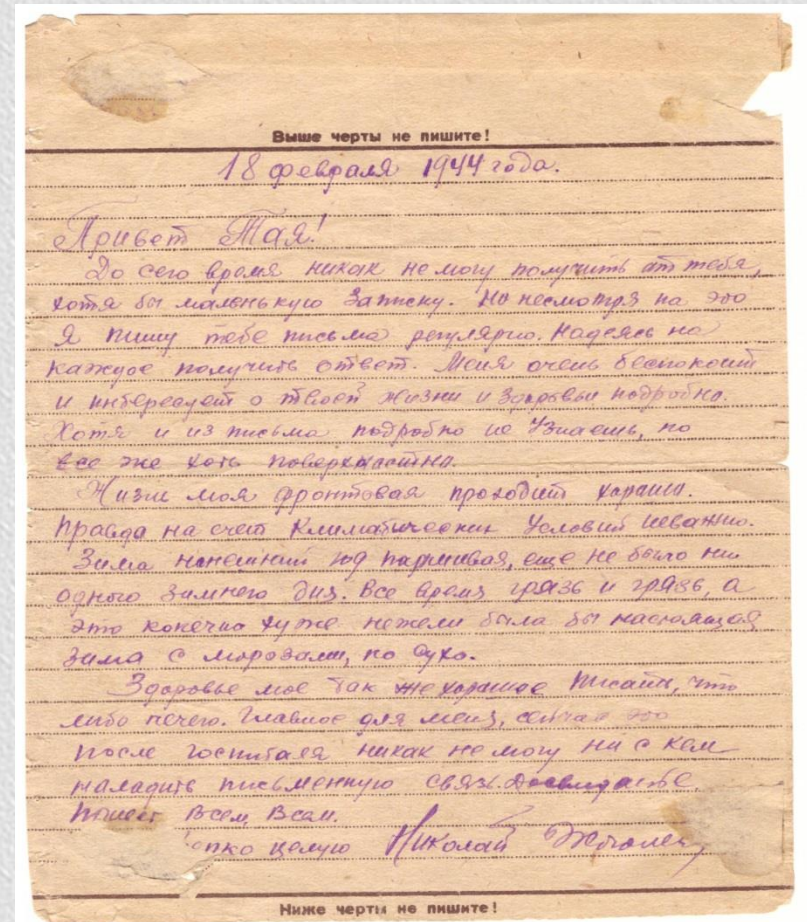 Выше черты не пишите!
18 февраля 1944 года.
Привет Тая!
До сего время никак не могу получить от тебя,
хотя бы маленькую записку. Но несмотря на это
я пишу тебе письма регулярно. Надеясь на
каждое получить ответ. Меня очень беспокоит
и интересует о твоей жизни и здоровьи подробно.
Хотя и из письма подробно не узнаешь, но
все же хоть поверхностно.
Жизнь моя фронтовая проходит хорошо.
Правда на счет климатических условий неважно.
Зима нынешний год паршивая, еще не было ни
одного зимнего дня. Все время грязь и грязь, а
это конечно хуже нежели была бы настоящая
зима с морозами, но сухо.
Здоровье мое так же хорошое писать, что
либо нечего. Главное для меня, сейчас это
после госпиталя никак не могу ни с кем
наладить письменную связь. Досвиданье
Привет Всем, Всем.
целую Николай
Ниже черты не пишите!